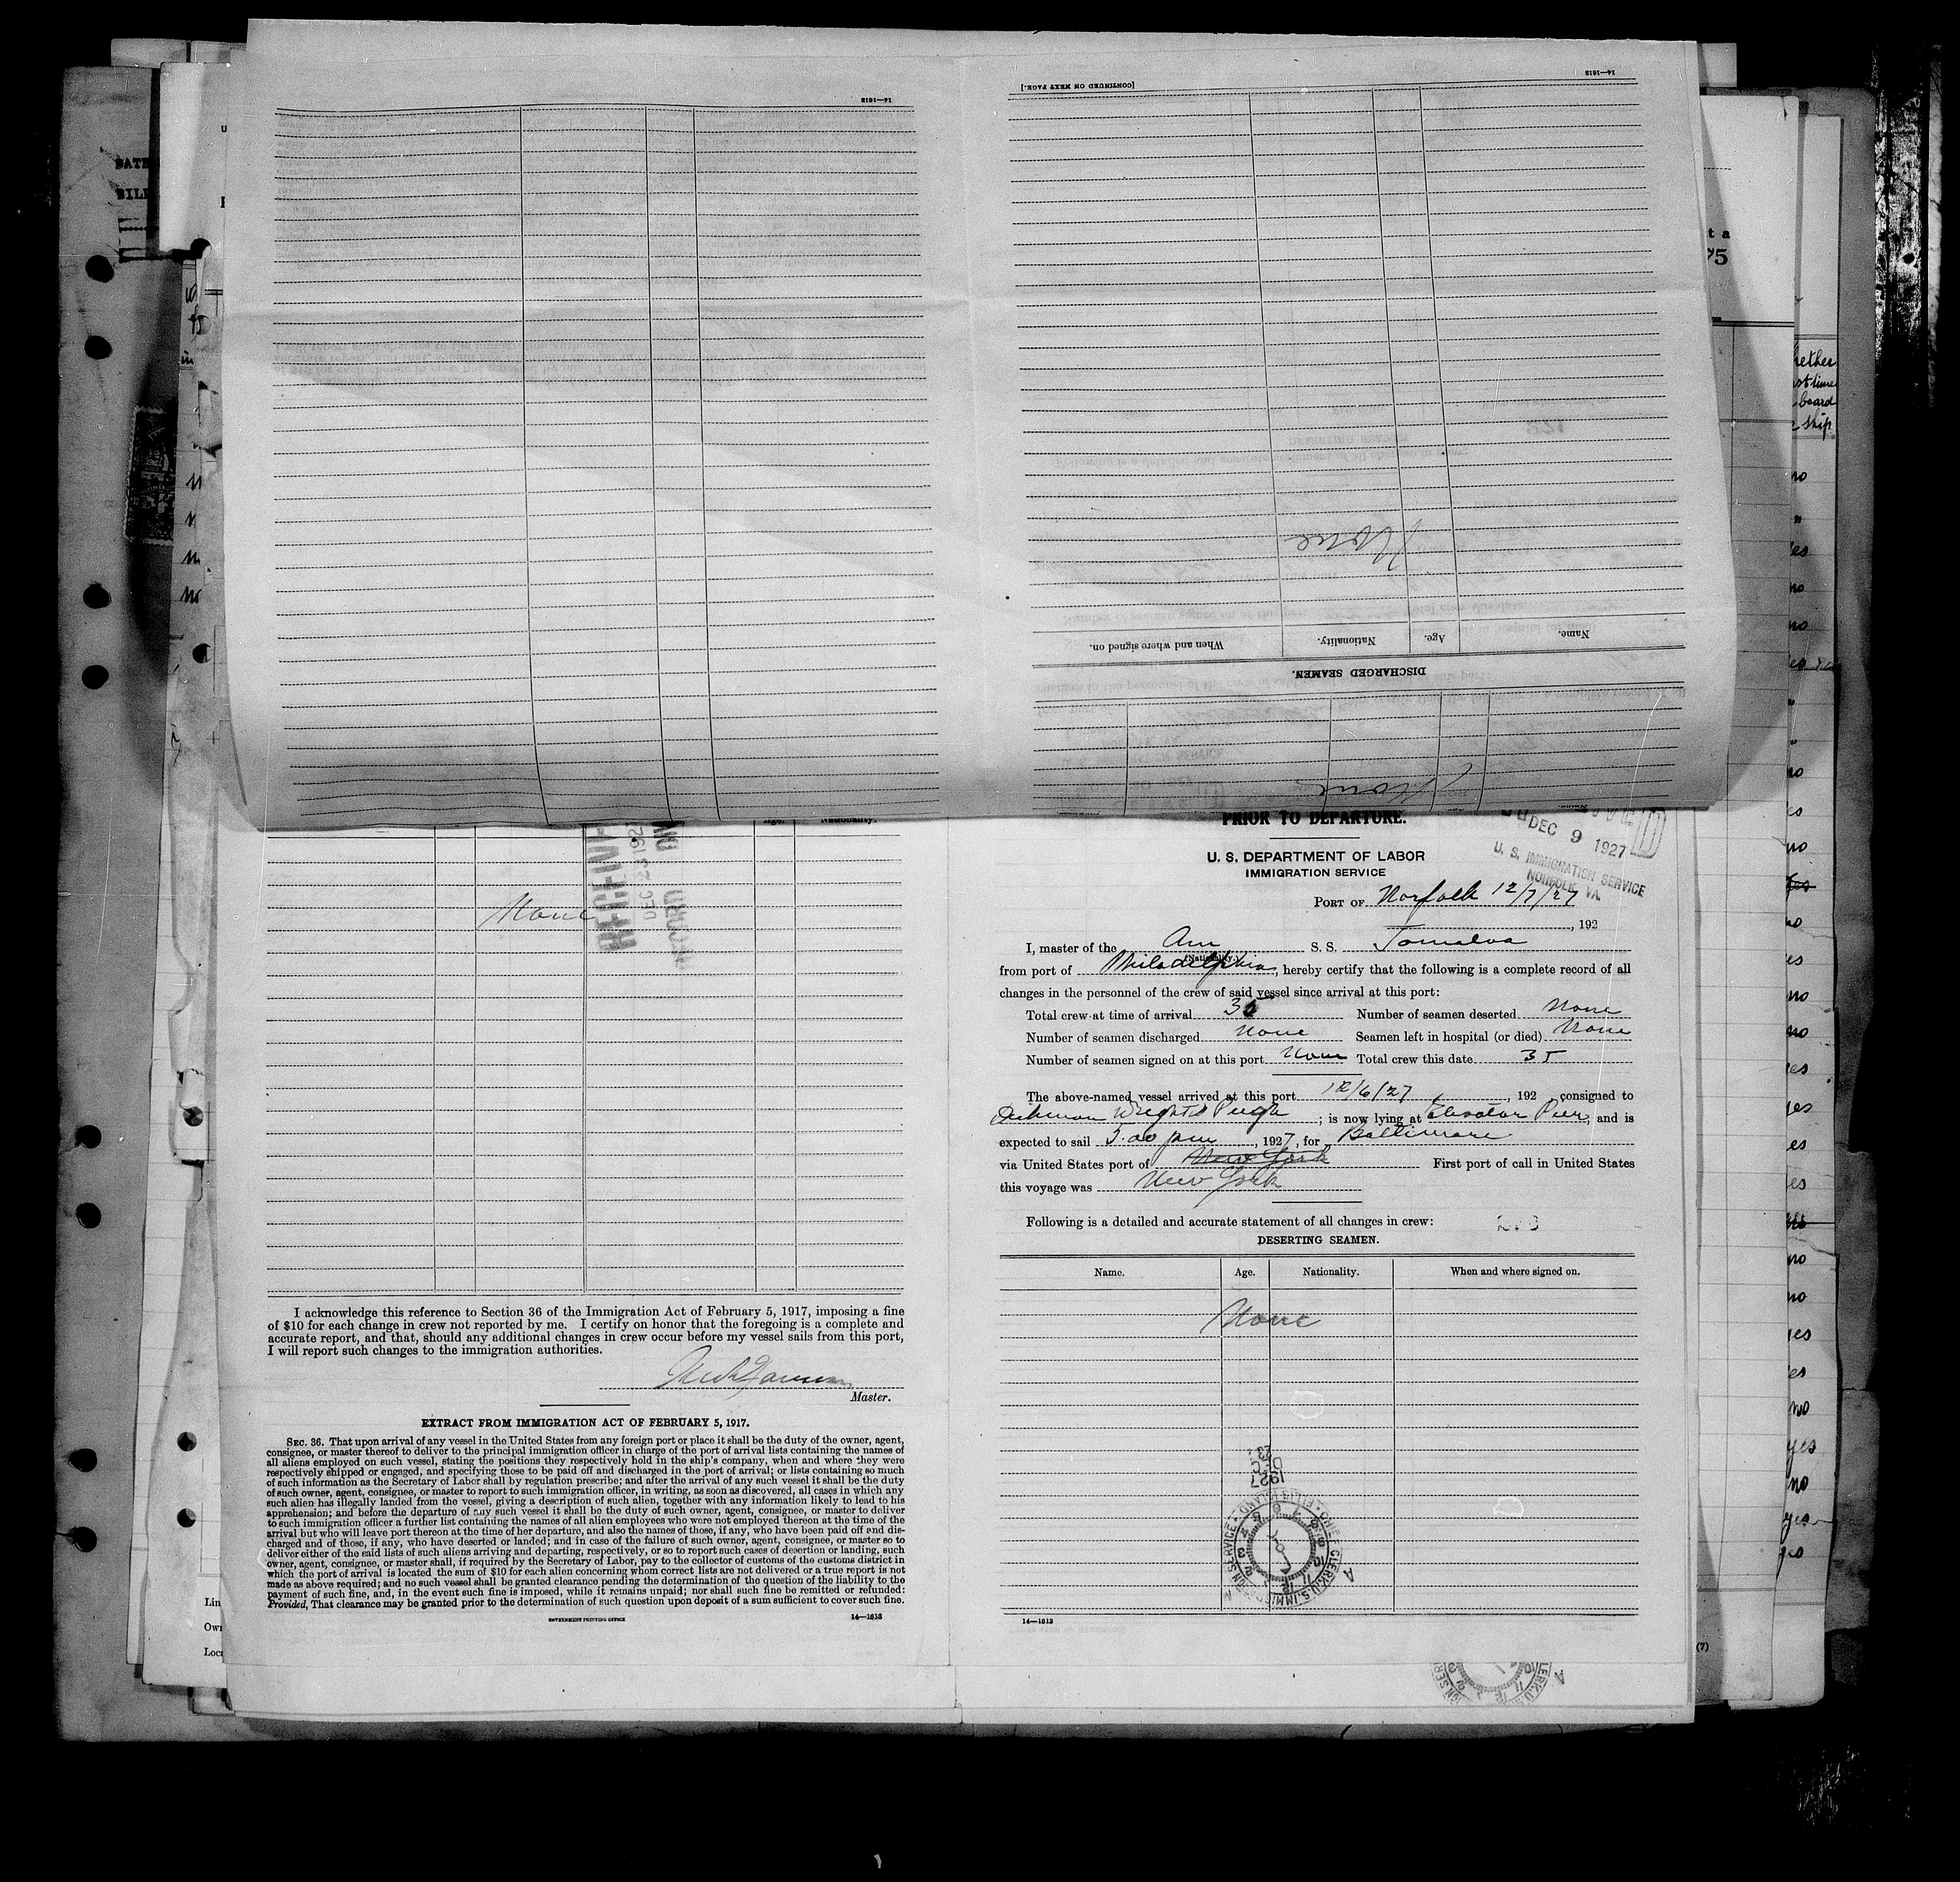 14—1613
14—1613
[CONTINUED ON NEXT PAGE.]
None
When and where signed on.
Nationality.
Age.
Name.
DISCHARGED SEAMEN.
None
DATE
t a
75
hether
board
ship
None
DEC 23 192
PRIOR TO DEPARTURE.
DEC 9 1927
U. S. IMMIGRATION SERVICE
NORFOLK, VA.
U. S. DEPARTMENT OF LABOR
IMMIGRATION SERVICE
PORT OF Norfolk 12/7/27
, 192
I, master of the Am S. S. Tomalva
(Nationality.)
from port of Philadelphia, hereby certify that the following is a complete record of all
changes in the personnel of the crew of said vessel since arrival at this port:
Total crew at time of arrival 35 Number of seamen deserted None
Number of seamen discharged None Seamen left in hospital (or died) None
Number of seamen signed on at this port None Total crew this date 35
The above-named vessel arrived at this port 12/6/27, 192 , consigned to
Wright & Pugh ; is now lying at Elevator Pier, and is
expected to sail 5.00 pm, 1927, for Baltimore
via United States port of New York First port of call in United States
this voyage was New York
Following is a detailed and accurate statement of all changes in crew:
DESERTING SEAMEN.
Name. Age. Nationality. When and where signed on.
None
1927
DEC
23
CHIEF CLERK, U. S. IMMIGRATION SERVICE • ELLIS ISLAND
14—1613
I acknowledge this reference to Section 36 of the Immigration Act of February 5, 1917, imposing a fine
of $10 for each change in crew not reported by me. I certify on honor that the foregoing is a complete and
accurate report, and that, should any additional changes in crew occur before my vessel sails from this port,
I will report such changes to the immigration authorities.
Master.
EXTRACT FROM IMMIGRATION ACT OF FEBRUARY 5, 1917.
SEC. 36. That upon arrival of any vessel in the United States from any foreign port or place it shall be the duty of the owner, agent,
consignee, or master thereof to deliver to the principal immigration officer in charge of the port of arrival lists containing the names of
all aliens employed on such vessel, stating the positions they respectively hold in the ship's company, when and where they were
respectively shipped or engaged, and specifying those to be paid off and discharged in the port of arrival; or lists containing so much
of such information as the Secretary of Labor shall by regulation prescribe; and after the arrival of any such vessel it shall be the duty
of such owner, agent, consignee, or master to report to such immigration officer, in writing, as soon as discovered, all cases in which any
such alien has illegally landed from the vessel, giving a description of such alien, together with any information likely to lead to his
apprehension; and before the departure of any such vessel it shall be the duty of such owner, agent, consignee, or master to deliver
to such immigration officer a further list containing the names of all alien employees who were not employed thereon at the time of the
arrival but who will leave port thereon at the time of her departure, and also the names of those, if any, who have been paid off and dis-
charged and of those, if any, who have deserted or landed; and in case of the failure of such owner, agent, consignee, or master so to
deliver either of the said lists of such aliens arriving and departing, respectively, or so to report such cases of desertion or landing, such
owner, agent, consignee, or master shall, if required by the Secretary of Labor, pay to the collector of customs of the customs district in
which the port of arrival is located the sum of $10 for each alien concerning whom correct lists are not delivered or a true report is not
made as above required; and no such vessel shall be granted clearance pending the determination of the question of the liability to the
payment of such fine, and, in the event such fine is imposed, while it remains unpaid; nor shall such fine be remitted or refunded:
Provided, That clearance may be granted prior to the determination of such question upon deposit of a sum sufficient to cover such fine.
GOVERNMENT PRINTING OFFICE 14—1613
(7)